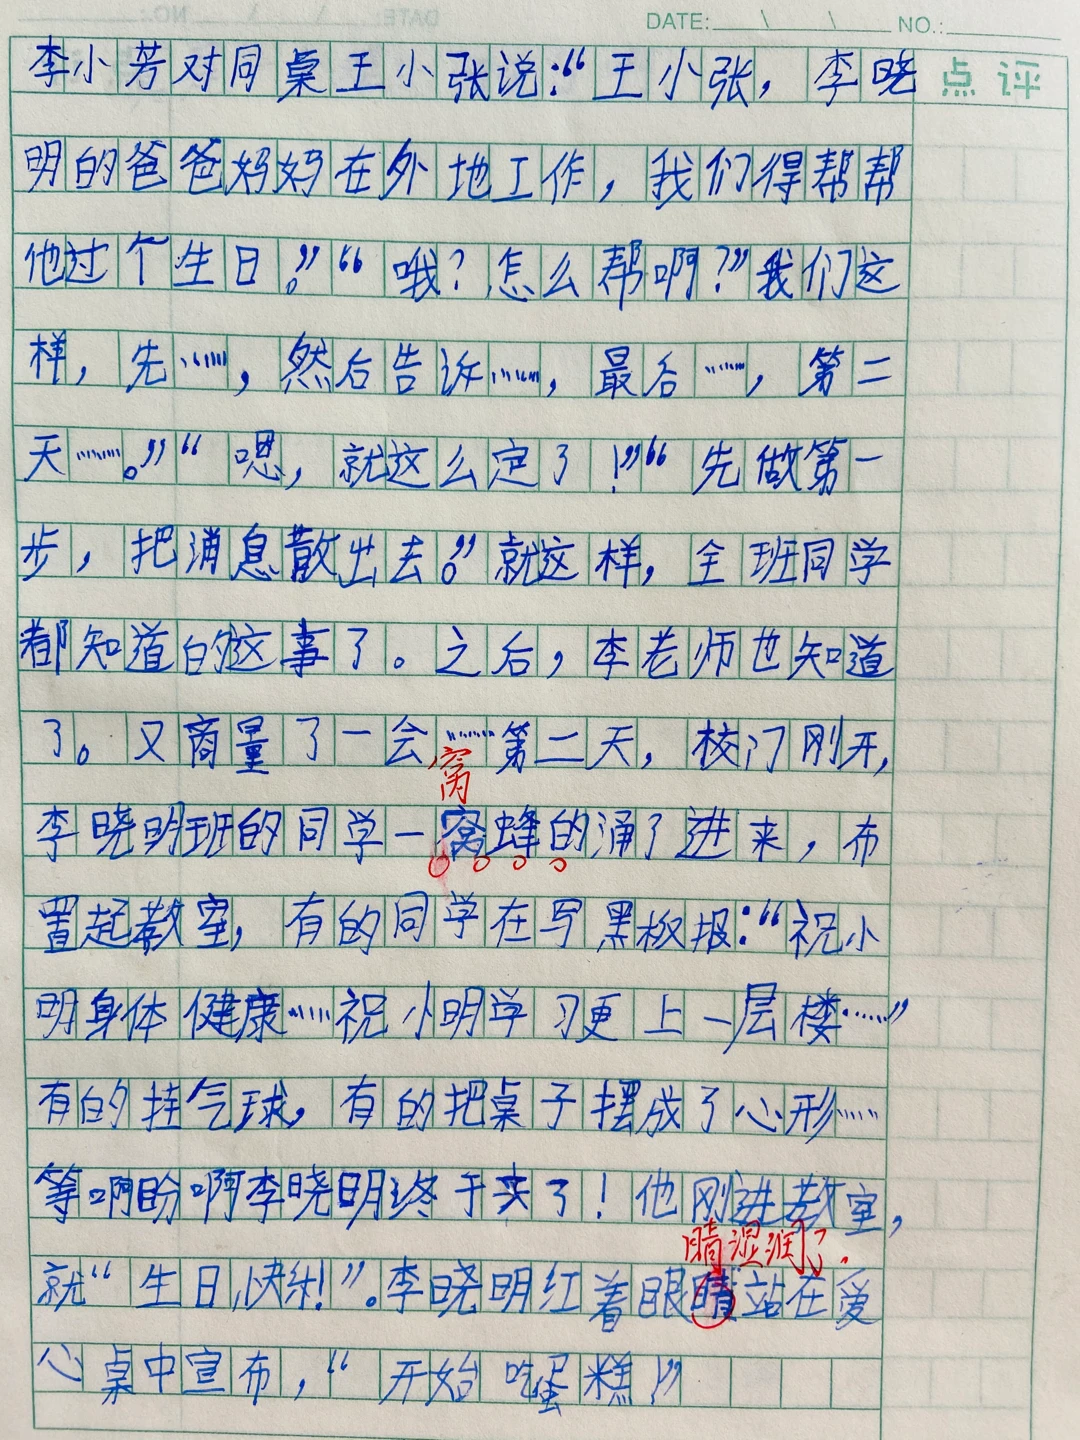 DATE: \ \ NO.:
李小芳对同桌王小张说:“王小张，李晓
点评
明的爸爸妈妈在外地工作，我们得帮帮
他过个生日。”“哦？怎么帮啊？”我们这
样，先……，然后告诉……，最后……，第二
天……。”“嗯，就这么定了！”“先做第一
步，把消息散出去。”就这样，全班同学
都知道的这事了。之后，李老师也知道
了。又商量了一会……第二天，校门刚开，
窝
李晓明班的同学一窝蜂的涌了进来，布
置起教室，有的同学在写黑板报：“祝小
明身体健康……祝小明学习更上一层楼……”
有的挂气球，有的把桌子摆成了心形……
等啊盼啊李晓明终于来了！他刚进教室，
睛湿润了.
就“生日快乐！”。李晓明红着眼睛站在爱
心桌中宣布，“开始吃蛋糕！”